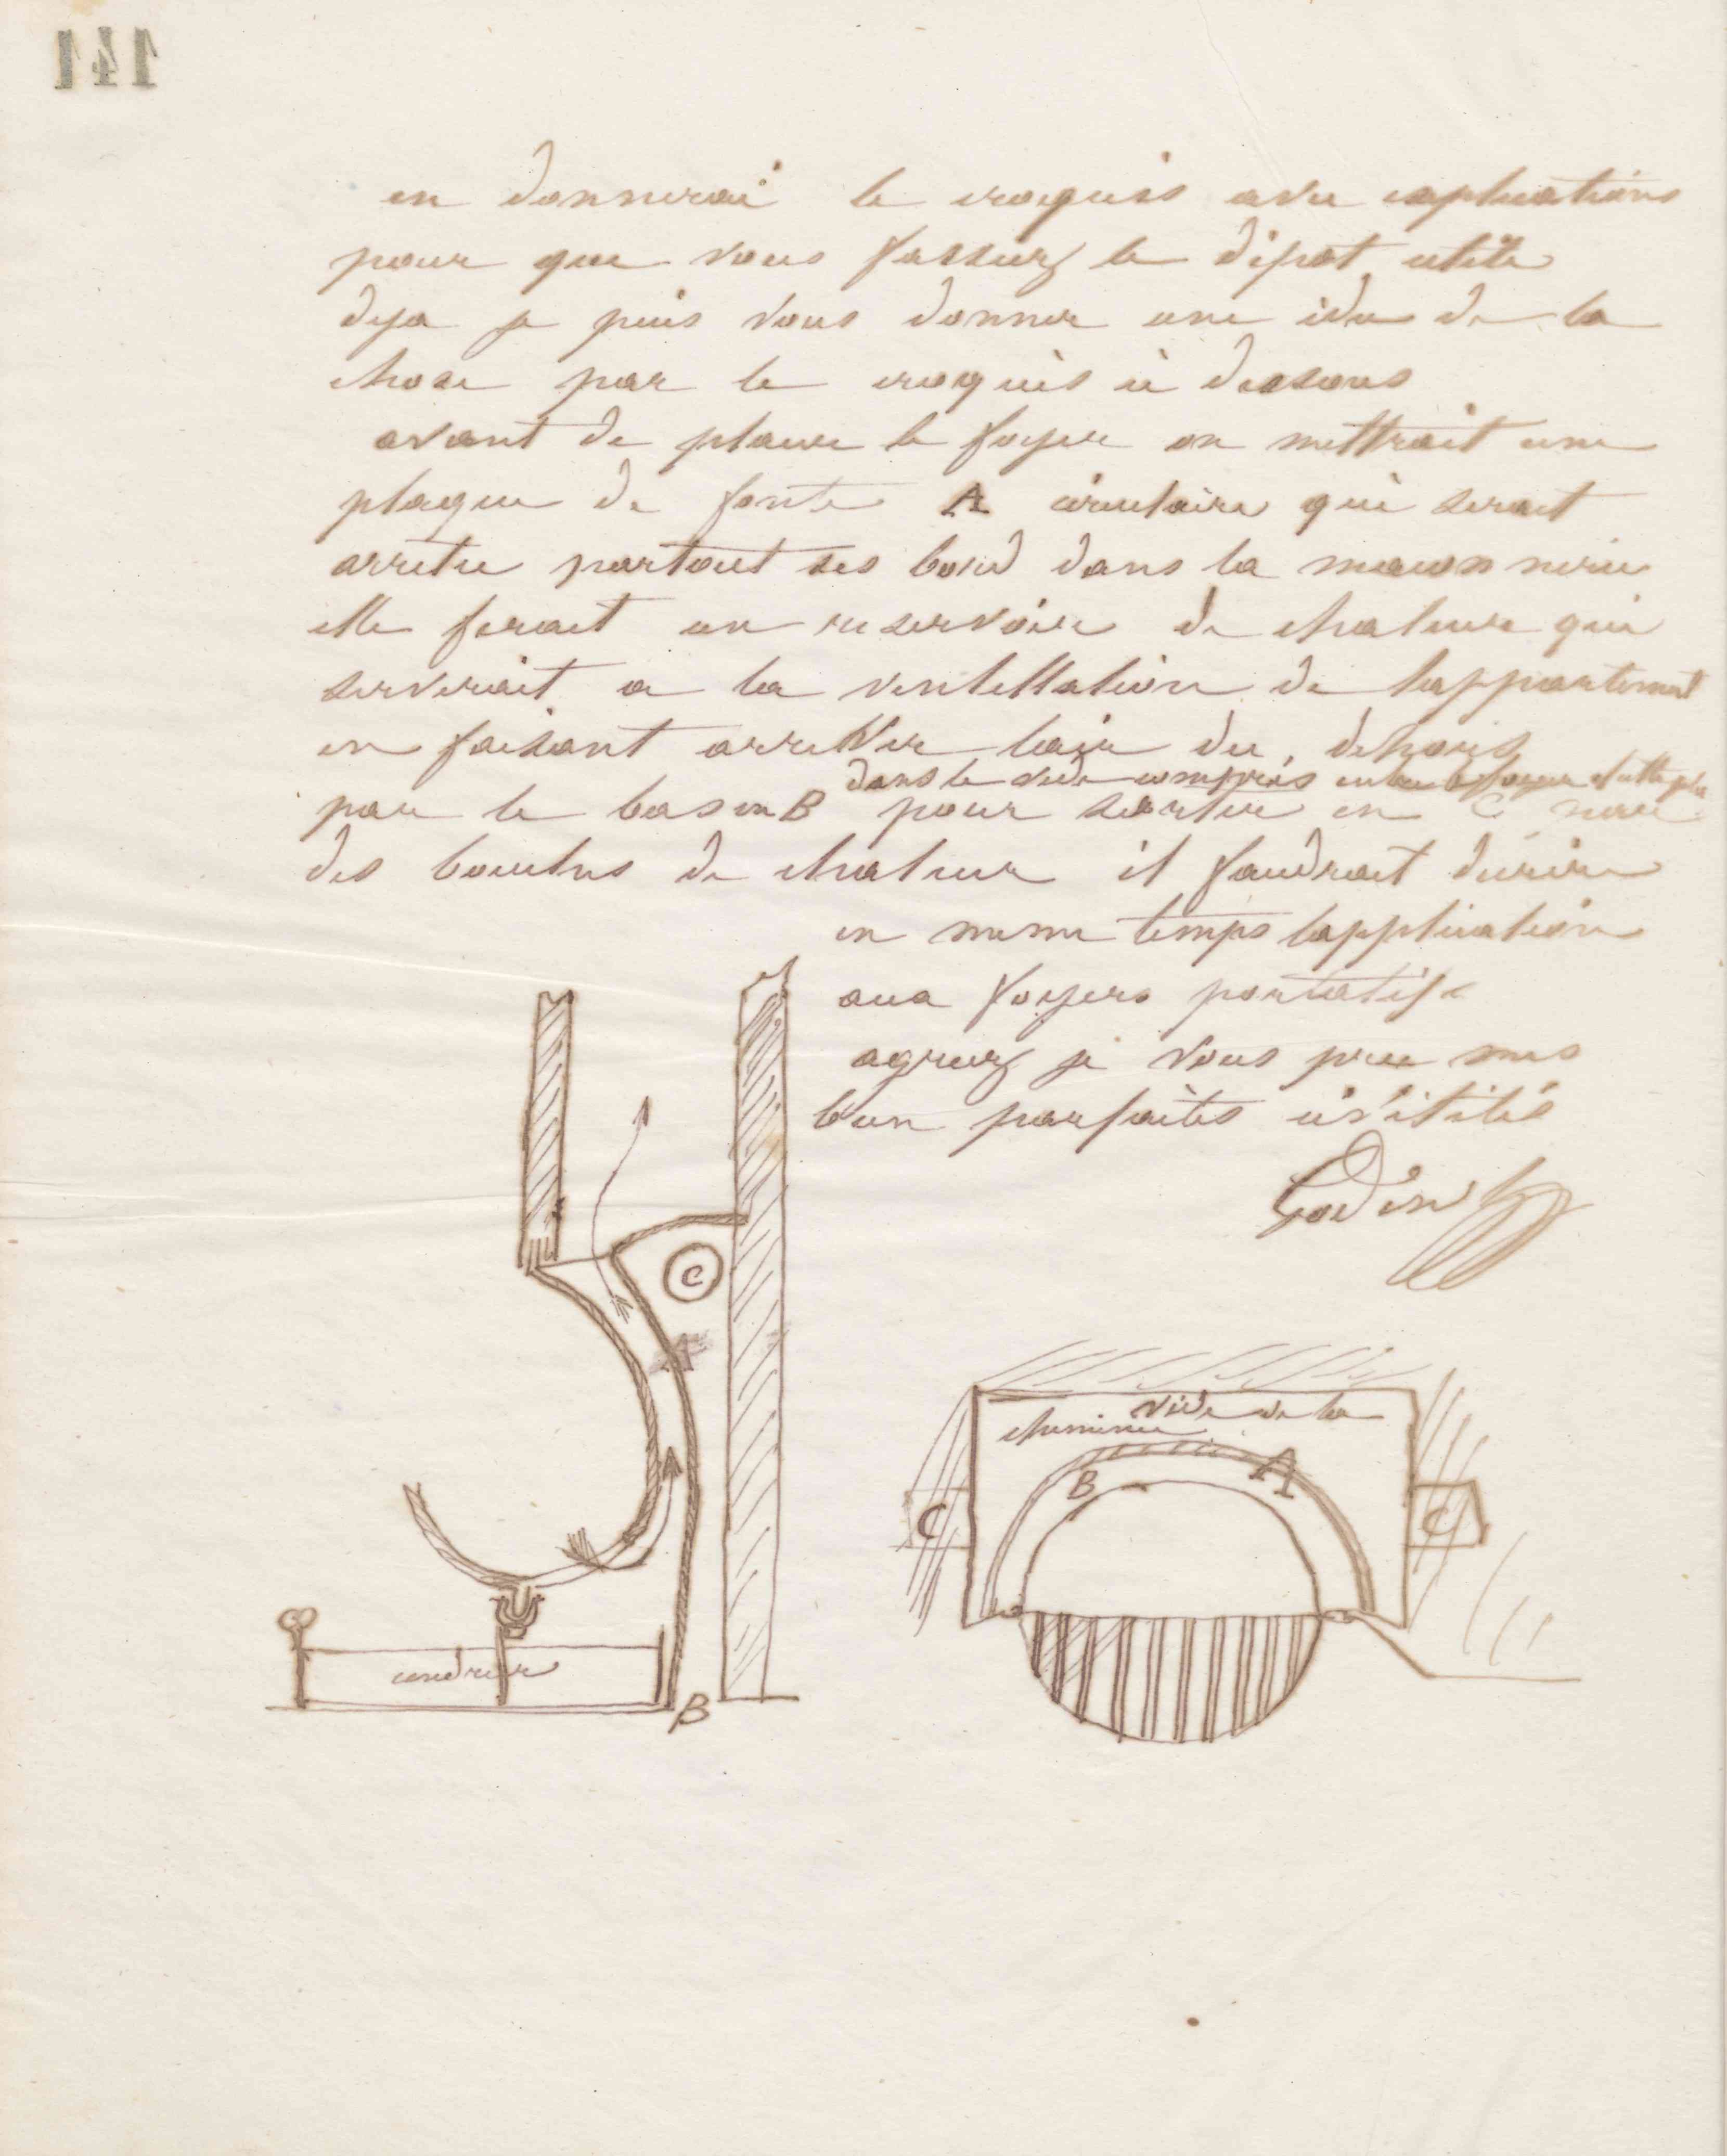 141
en donnerai le croquis avec explications
pour que vous fassiez le dépot utile
deja je puis vous donner une idee de la
chose par le croquis ci dessous
avant de placer le foyer on mettrait une
plaque de fonte A circulaire qui serait
arretee partout ses bord dans la maconnerie
elle ferait un reservoir de chaleur qui
serverait a la ventellation de lappartement
en faisant arriver lair du dehors
dans le vide compris entre le foyer et cette
par le bas en B pour sortir en C
des bouches de chaleur il faudrait decrire
en meme temps lapplication
aux foyers portatifs
agreez je vous prie mes
bien parfaites civilités
Godin
C
A
cendrier
B
vide de la
cheminee
B
A
C
C